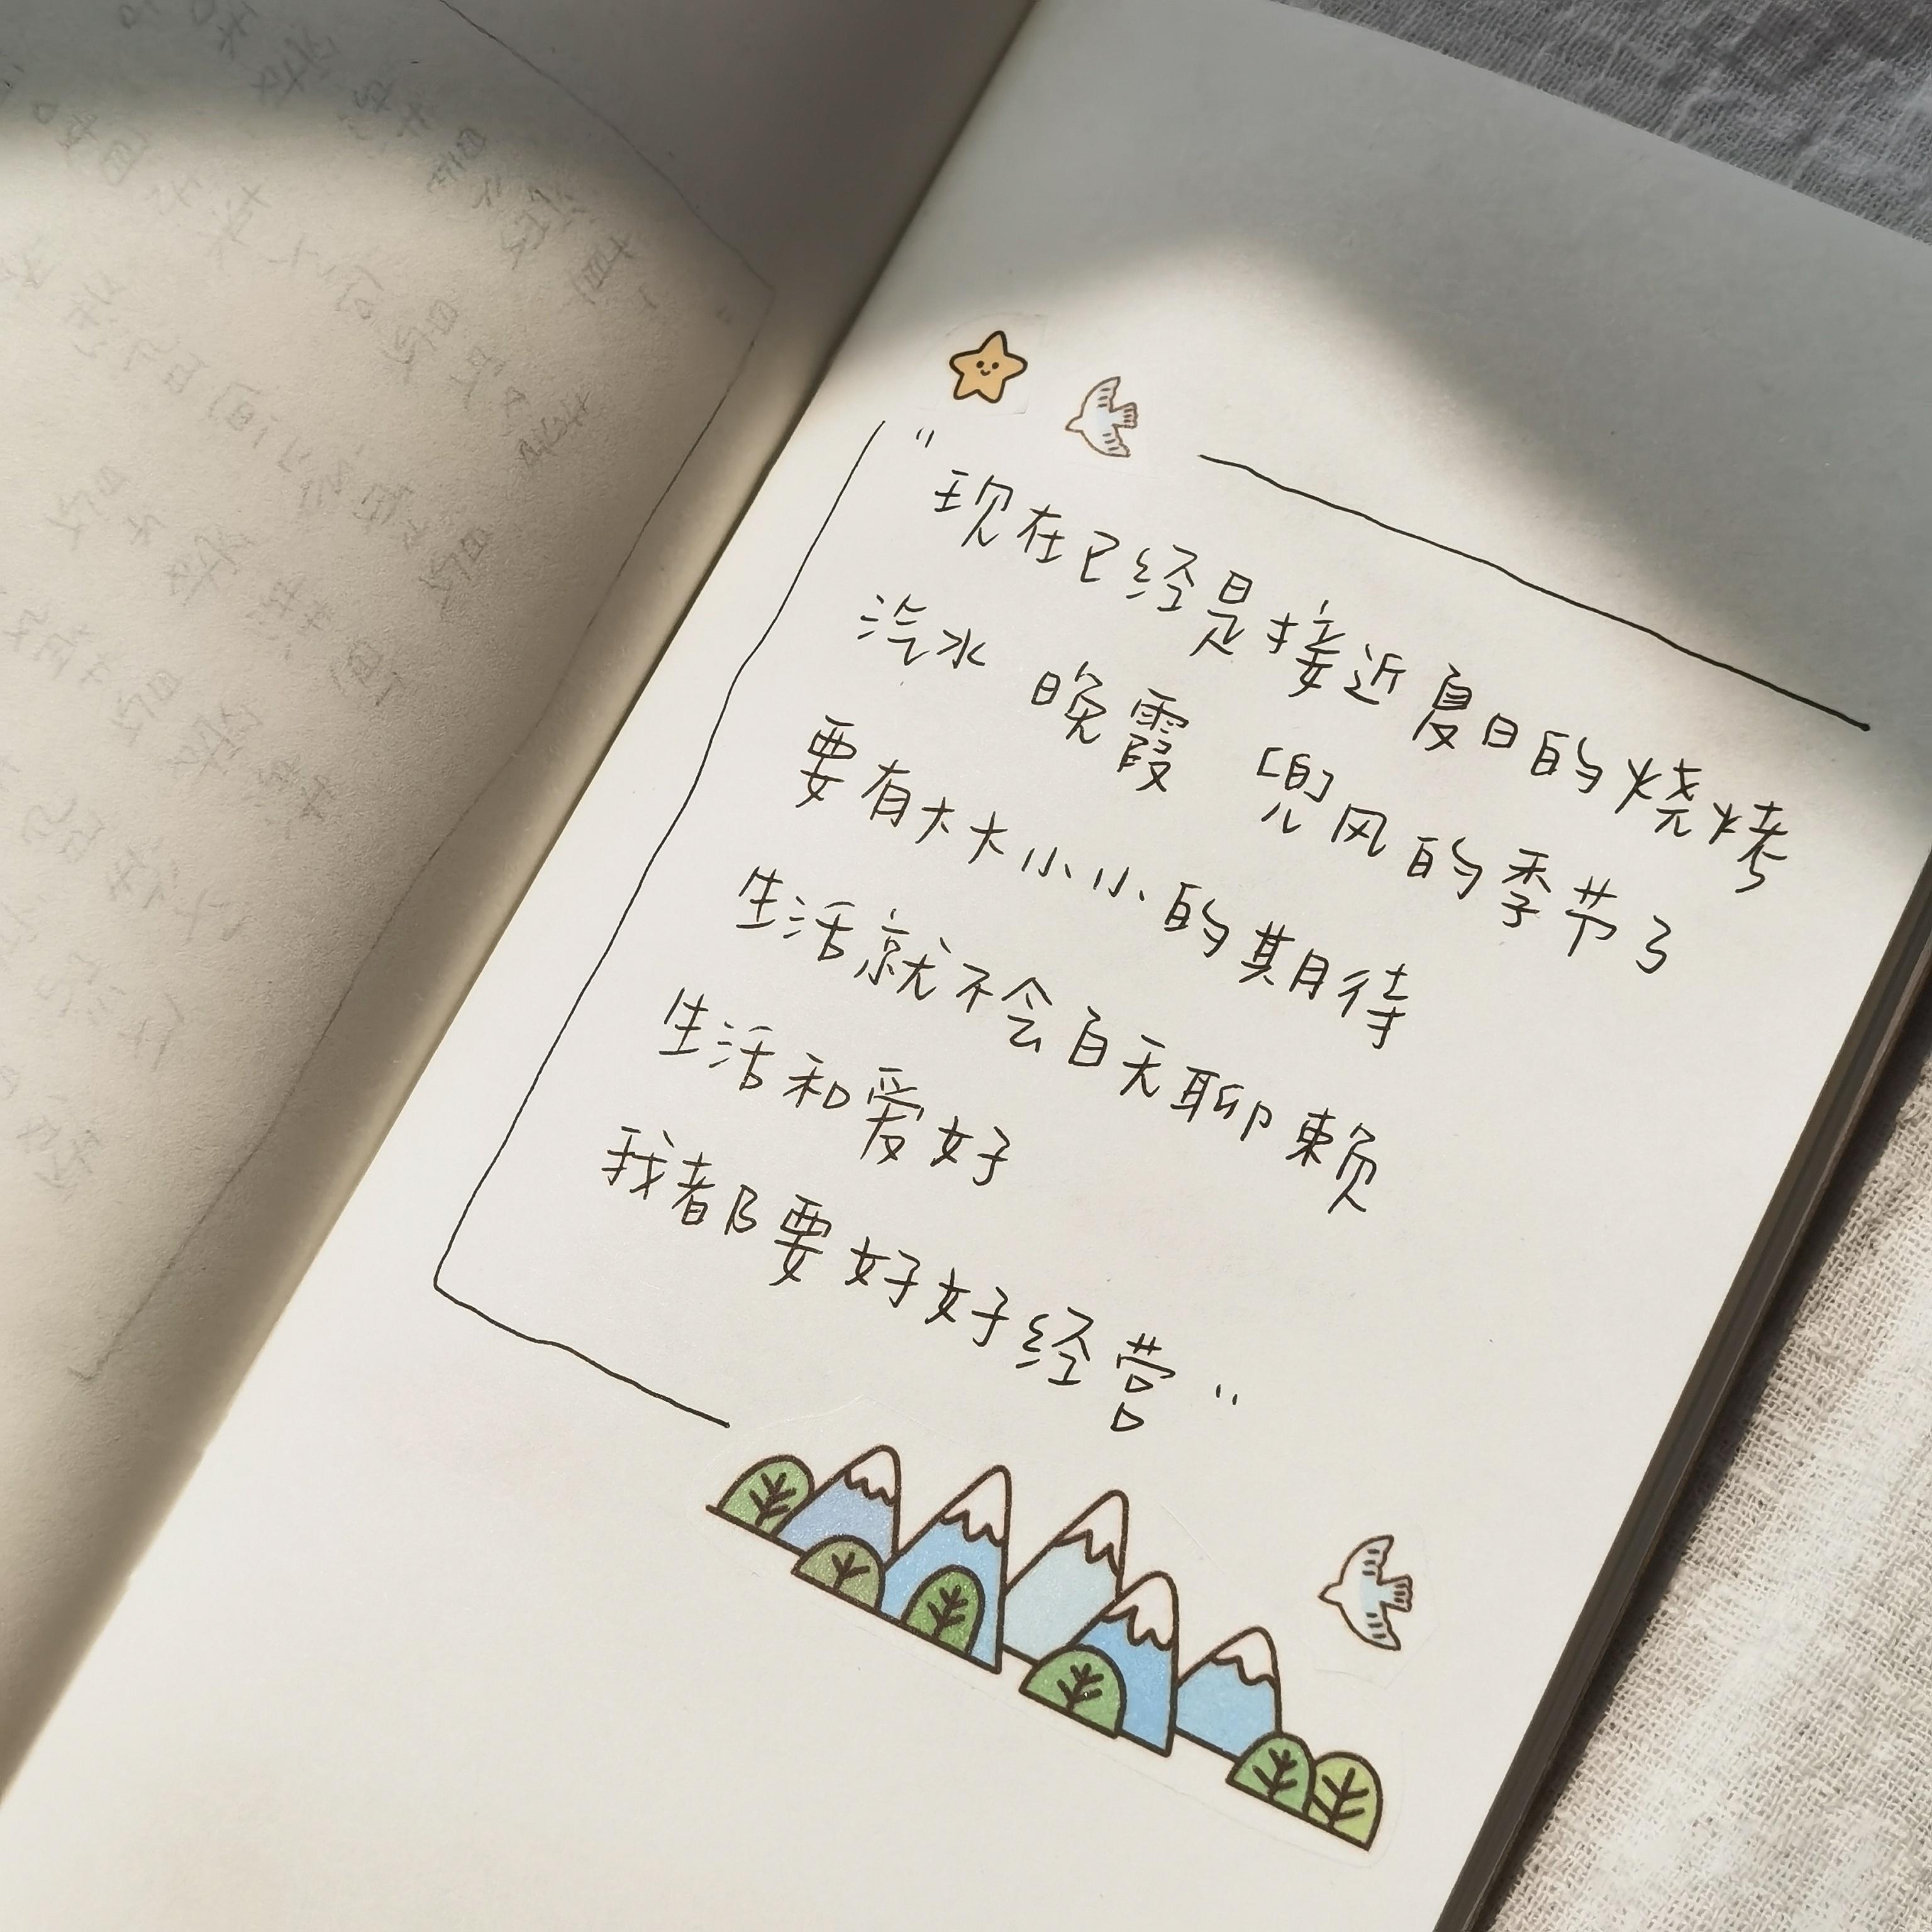 "现在已经是接近夏日的烧烤
汽水 晚霞 兜风的季节了
要有大大小小的期待
生活就不会百无聊赖
生活和爱好
我都要好好经营"